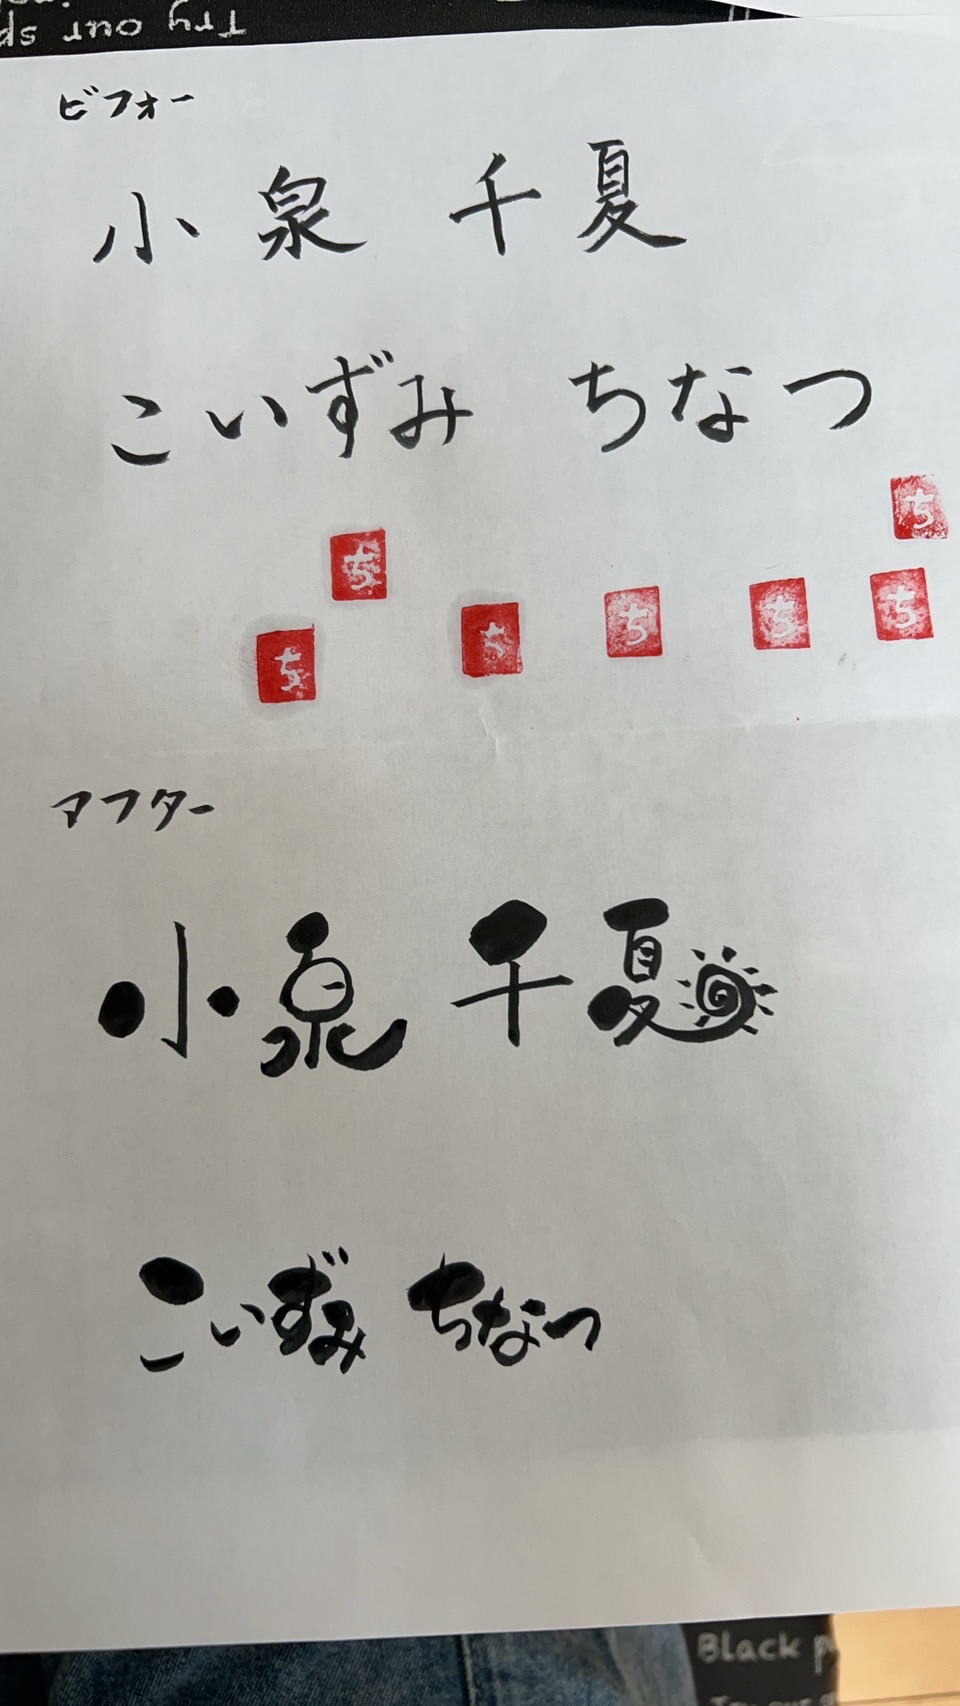 Try out sp
ビフォー
小泉 千夏
こいずみ ちなつ
ち
ち
ち
ち
ち
ち
ち
アフター
小泉 千夏
こいずみ ちなつ
Black